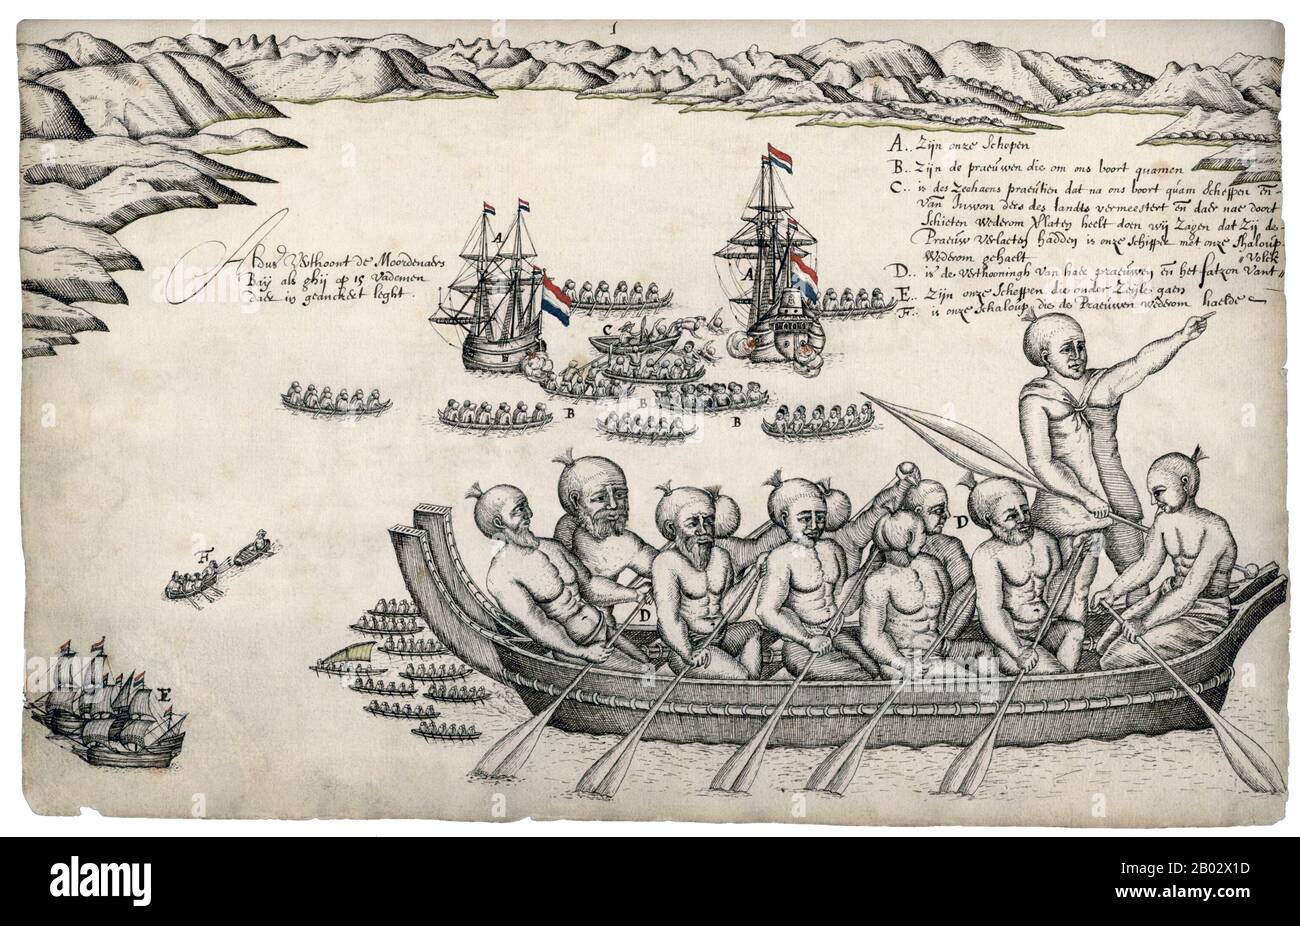 1
A.. Zijn onze Schepen
B.. Zijn de praeuwen die om ons boort quamen
C.. is des Zeehaens praeutien dat na ons boort quam Scheppen en
van Inwon ders des landts vermeestert en daer nae doort
Schieten Wederom Verlaten heelt doen wij Zagen dat Zij de
Praeuw Verlaeten hadden is onze Schipper met onze Shaloup
Wederom gehaelt
D.. is de Verthooningh van haer praeuwen en het fatzon Vant
Volck
E.. Zijn onze Scheppen die onder Zeijle gaen
F.. is onze Schaloup die de Praeuwen wederom haelde
Aldus Verthoont de Moordenaers
Baij als ghij op 15 Vademen
Daer in geanckert leght
A
A
B
C
B
B
D
D
F
E
alamy
Image ID: B02X1D
www.alamy.com